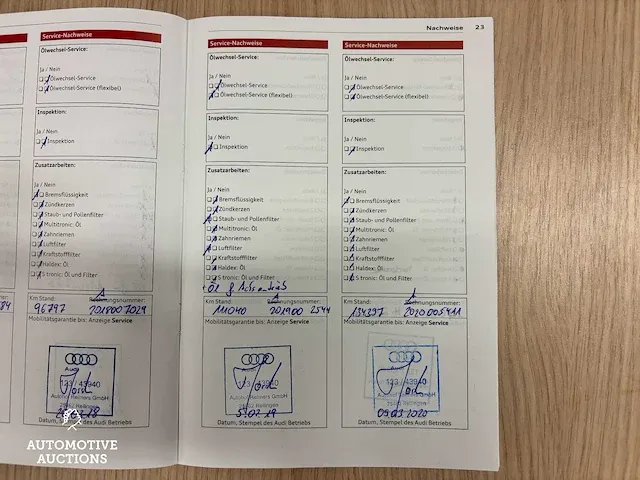 Nachweise 23
Service-Nachweise
Ölwechsel-Service:
Ja / Nein
Ölwechsel-Service
Ölwechsel-Service (flexibel)
Inspektion:
Ja / Nein
Inspektion
Zusatzarbeiten:
Ja / Nein
Bremsflüssigkeit
Zündkerzen
Staub- und Pollenfilter
Multitronic: Öl
Zahnriemen
Luftfilter
Kraftstofffilter
Haldex: Öl
S tronic: Öl und Filter
Km Stand:
96797 2018007029
Mobilitätsgarantie bis: Anzeige Service
Audi
123 / 43940
Datum, Stempel des Audi Betriebs
Service-Nachweise
Ölwechsel-Service:
Ja / Nein
Ölwechsel-Service
Ölwechsel-Service (flexibel)
Inspektion:
Ja / Nein
Inspektion
Zusatzarbeiten:
Ja / Nein
Bremsflüssigkeit
Zündkerzen
Staub- und Pollenfilter
Multitronic: Öl
Zahnriemen
Luftfilter
Kraftstofffilter
Haldex: Öl
S tronic: Öl und Filter
Km Stand:
111040 201900 2544
Mobilitätsgarantie bis: Anzeige Service
123 / 43940
Datum, Stempel des Audi Betriebs
Service-Nachweise
Ölwechsel-Service:
Ja / Nein
Ölwechsel-Service
Ölwechsel-Service (flexibel)
Inspektion:
Ja / Nein
Inspektion
Zusatzarbeiten:
Ja / Nein
Bremsflüssigkeit
Zündkerzen
Staub- und Pollenfilter
Multitronic: Öl
Zahnriemen
Luftfilter
Kraftstofffilter
Haldex: Öl
S tronic: Öl und Filter
Km Stand:
134397 2020005411
Mobilitätsgarantie bis: Anzeige Service
123 / 43940
09.03.2020
Datum, Stempel des Audi Betriebs
AUTOMOTIVE
AUCTIONS